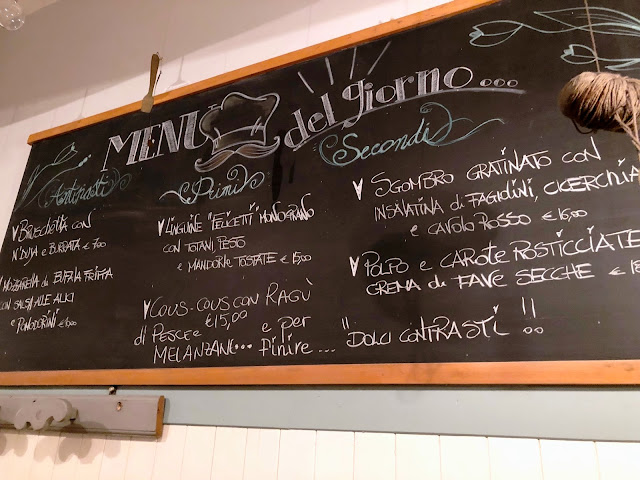 MENÙ del giorno...
Antipasti
Bruschetta con
N'DUJA e BURRATA € 7,00
MOZZARELLA di BUFALA FRITTA
CON SALSA ALLE ALICI
e POMODORINI
Primi
LINGUINE "FELICETTI" MONOGRANO
CON TOTANI, PESTO
e MANDORLE TOSTATE € 15,00
COUS-COUS CON RAGÙ
di PESCE e €15,00
MELANZANE...
e per
finire...
Secondi
SGOMBRO GRATINATO CON
INSALATINA di FAGIOLINI, CICERCHIA
e CAVOLO ROSSO € 16,00
POLPO e CAROTE ROSTICCIATE
CREMA di FAVE SECCHE €
!! DOLCI CONTRASTI !!